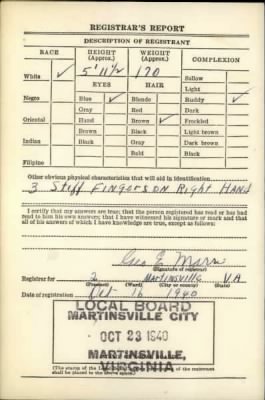 REGISTRAR'S REPORT
DESCRIPTION OF REGISTRANT
RACE HEIGHT (Approx.) WEIGHT (Approx.) COMPLEXION
White ✓ 5' 11½ 170 Sallow
Light
EYES HAIR Ruddy ✓
Negro Blue ✓ Blonde Dark
Gray Red Freckled
Oriental Hazel Brown ✓ Light brown
Brown Black Dark brown
Indian Black Gray Black
Bald
Filipino
Other obvious physical characteristics that will aid in identification
3 Stiff Fingers on Right Hand
I certify that my answers are true; that the person registered has read or has had
read to him his own answers; that I have witnessed his signature or mark and that
all of his answers of which I have knowledge are true, except as follows:
Geo E
(Signature of registrar)
Registrar for 2 Martinsville VA
(Precinct) (Ward) (City or county) (State)
Date of registration Oct 16 1940
LOCAL BOARD
MARTINSVILLE CITY
OCT 23 1940
MARTINSVILLE,
VIRGINIA
(The stamp of the Local
shall be placed in the above space.)